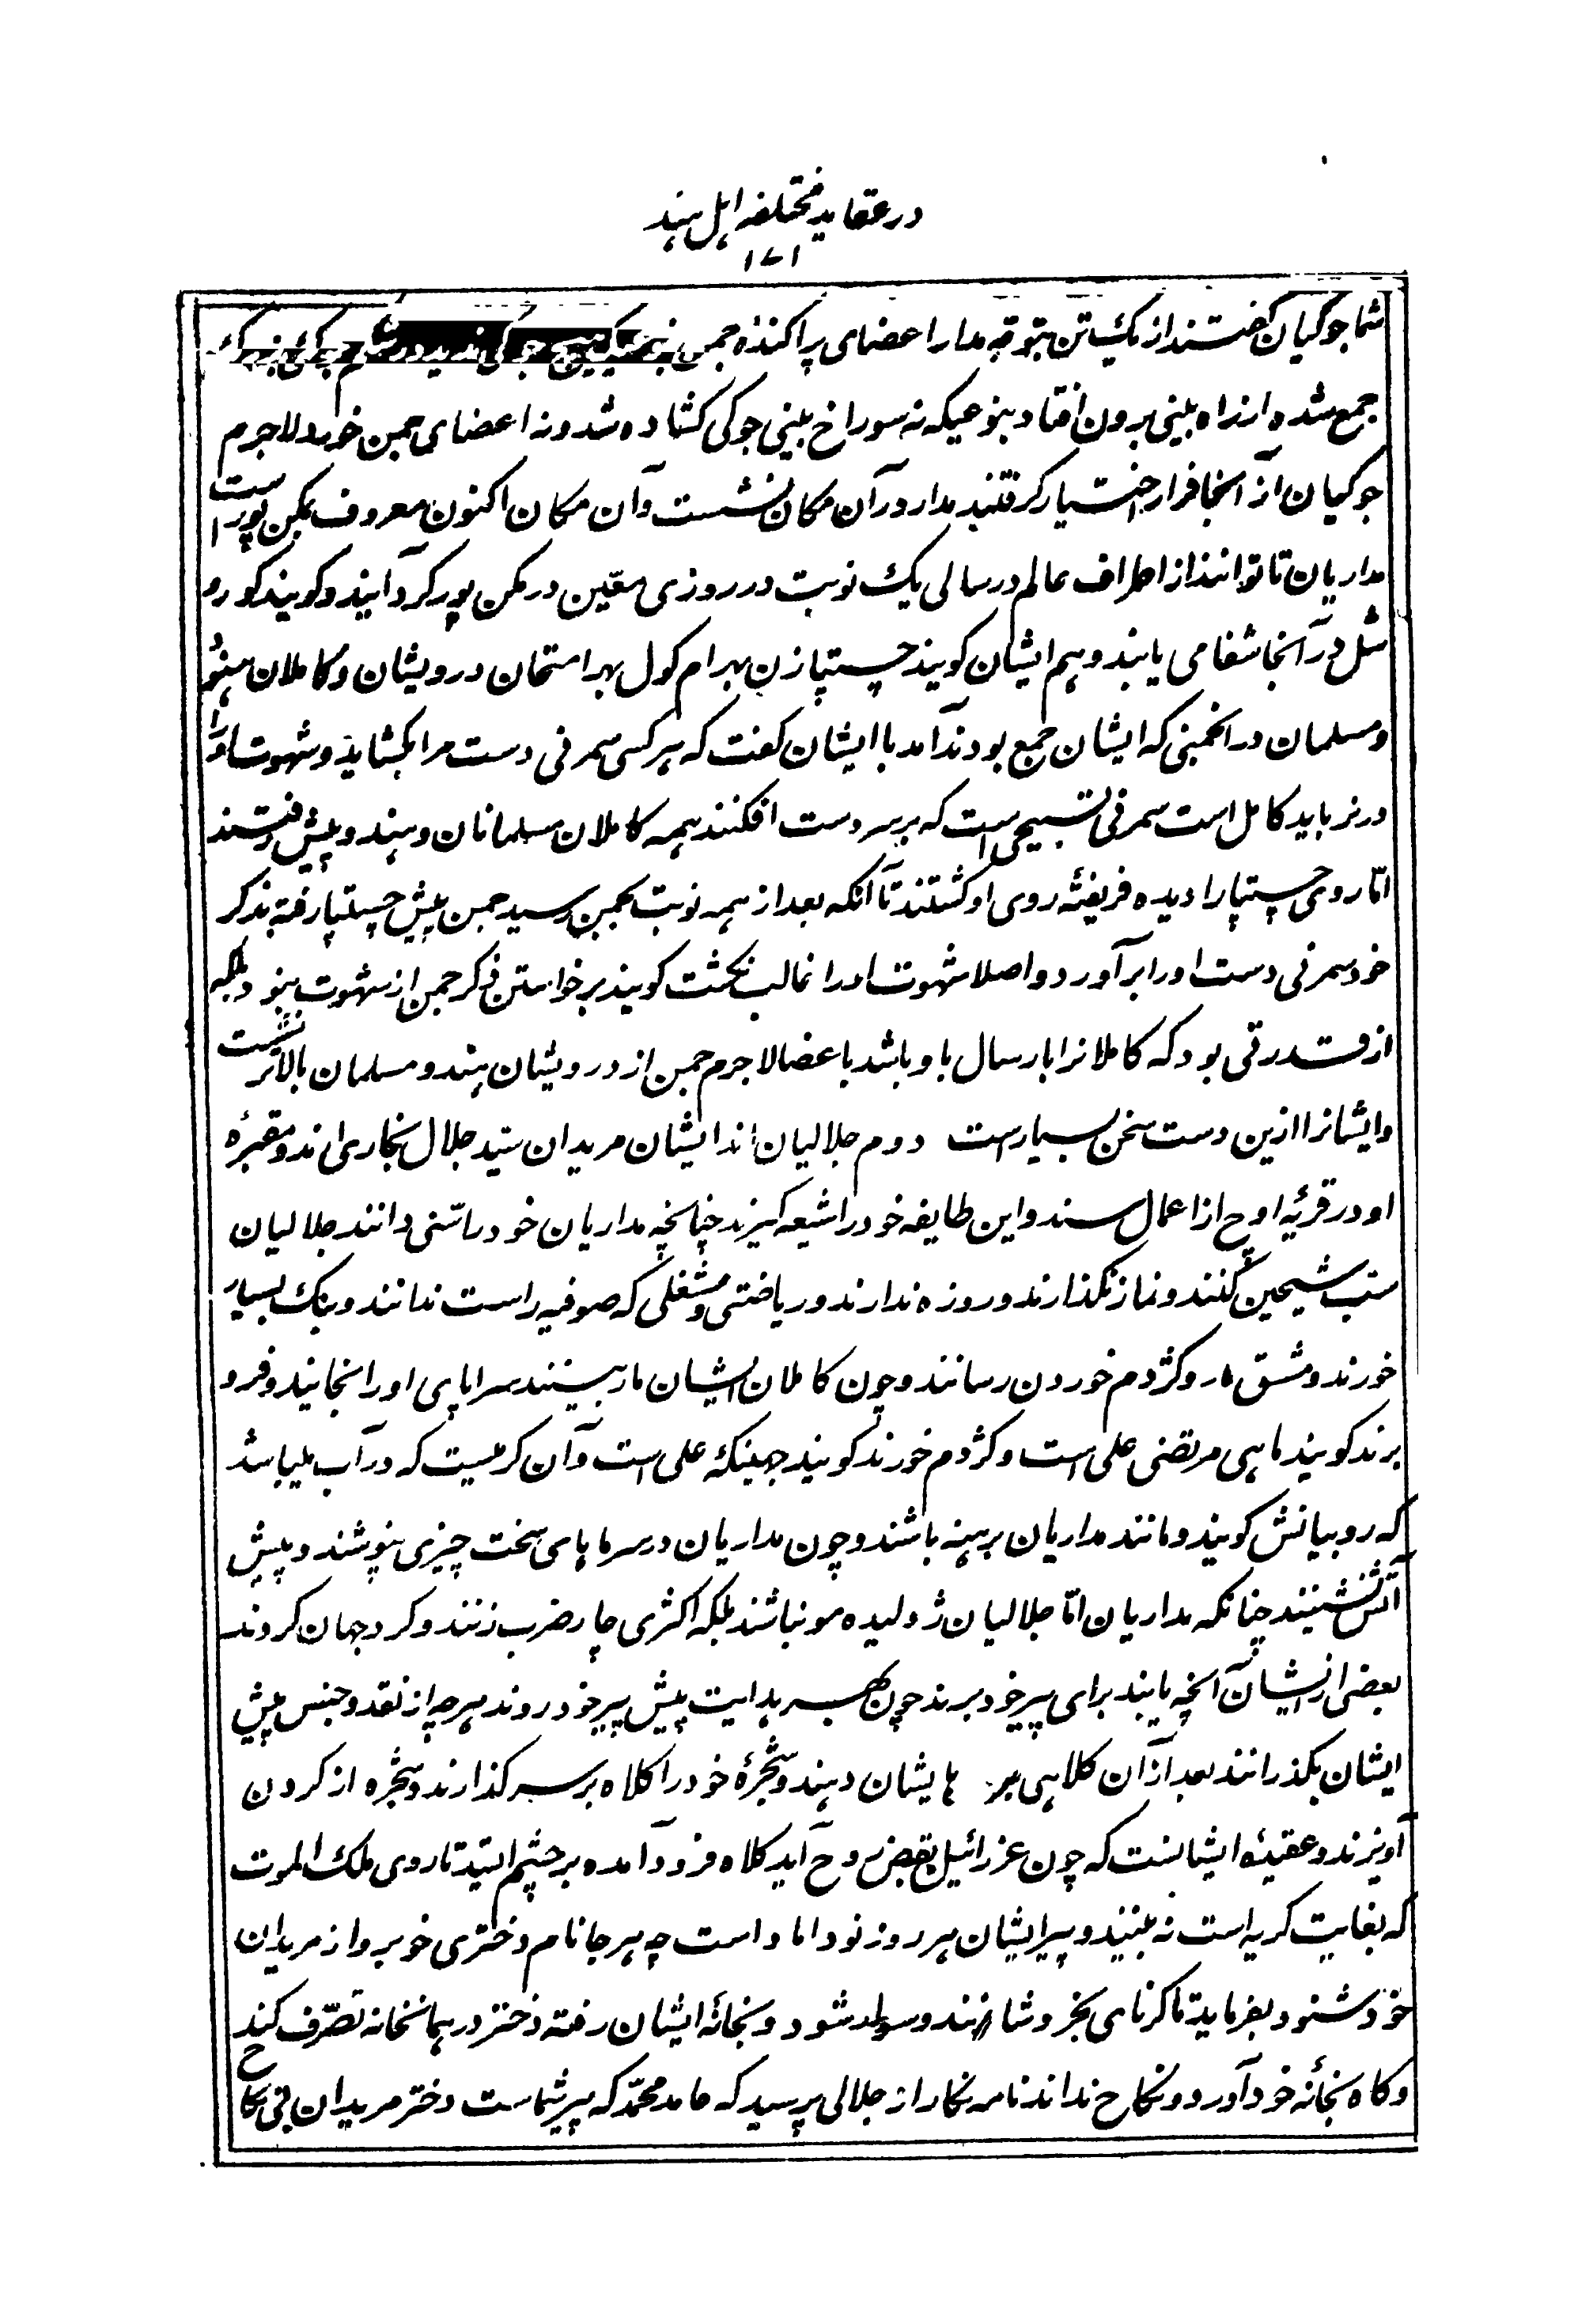 در عقاید مختلفه اهل هند
۱۷۱
شما جوکیان کفتند از یک تن بتوجه مدار اعضای پراکنده جمن
جمع شده از راه بینی برون افتاد بنوعیکه نه سوراخ بینی جوکی کشاده شد و نه اعضای جمن خورد لاجرم
جوکیان از آنجا فرار اختیار کرفتند مدار در آن مکان نشست و آن مکان اکنون معروف بمکن پور است
مداریان تا توانند از اطراف عالم در سالی یک نوبت در روزی معین در مکن پور کرد آیند و کویند کور و
شل در آنجا شفا می یابند و هم ایشان کویند چستیا زن بهرام کول بهر امتحان درویشان و کاملان هنود
و مسلمان در انجمنی که ایشان جمع بودند آمد با ایشان کفت که هر کسی سمرنی دست مرا بکشاید و شهوت او را
در نرباید کامل است سمرنی تسبیحی است که بر سر دست افکنند همه کاملان مسلمانان و هندو پیش رفتند
امّا روی چستیا را دیده فریفتهٔ روی او کشتند تا آنکه بعد از همه نوبت بجمن رسید جمن پیش چستیا رفته بذکر
خود سمرنی دست او را برآورد و اصلا شهوت او را غالب نکشت کویند برخواستن ذکر جمن از شهوت نبود بلکه
از قدرتی بود که کاملانرا بارسال با و باشد با عضا لاجرم جمن از درویشان هند و مسلمان بالاتر نشست
و ایشانرا ازین دست سخن بسیار است دوم جلالیان اند ایشان مریدان سیّد جلال بخاری اند و مقبرهٔ
او در قریهٔ اوچ از اعمال سند و این طایفه خود را شیعه کیرند چنانچه مداریان خود را سنّی دانند جلالیان
سبّ شیخین کنند و نماز نکذارند و روزه ندارند و ریاضتی و شغلی که صوفیه راست ندانند و بنک بسیار
خورند و مشق مار و کژدم خوردن رسانند و چون کاملان ایشان مار بینند سراپای او را بخایند و فرو
برند کویند ماهی مرتضی علی است و کژدم خورند کویند جهینکهٔ علی است و آن کرمیست که در آب میباشد
که روبیانش کویند و مانند مداریان برهنه باشند و چون مداریان در سرماهای سخت چیزی نپوشند و پیش
آتش نشینند چنانکه مداریان امّا جلالیان ژولیده مو نباشند بلکه اکثری چار ضرب زنند و کرد جهان کروند
بعضی از ایشان آنچه یابند برای پیر خود برند چون بهر هدایت پیش پیر خود روند هر چه از نقد و جنس پیش
ایشان بکذرانند بعد از آن کلاهی بایشان دهند و شجرهٔ خود را کلاه بر سر کذارند و شجره از کردن
آویزند و عقیدهٔ ایشانست که چون عزرائیل بقبض روح آید کلاه فرود آمده بر چشم ایستد تا روی ملک الموت
که بغایت کریه است نه بینند و پیر ایشان هر روز نو داماد است چه هر جا نام دختری خوبرو از مریدان
خود شنود بفرماید تا کرنای بخروشانند و سوار شود و بخانهٔ ایشان رفته دختر در همانخانه تصرّف کند
و کاه بخانهٔ خود آورد و نکاح نداند نامه نکار از جلالی پرسید که حامد محمّد که پیر شماست دختر مریدان بی نکاح